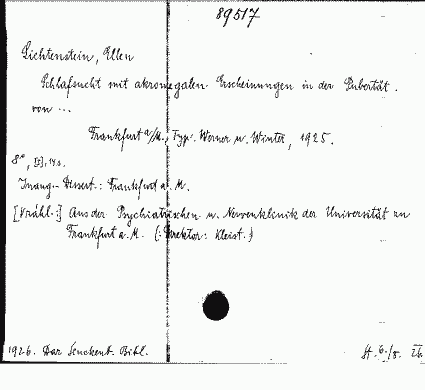 89517
Lichtenstein, Ellen
Schlafsucht mit akromegalen Erscheinungen in der Pubertät.
von ...
Frankfurt a/M., Typ. Werner u. Winter, 1925.
8°, [1], 14 s.
Inaug.-Dissert.: Frankfurt a. M.
Aus der Psychiatrischen u. Nervenklinik der Universität zu
Frankfurt a. M. (: Direktor: Kleist.)
1926. Dar Senckenb. Bibl.